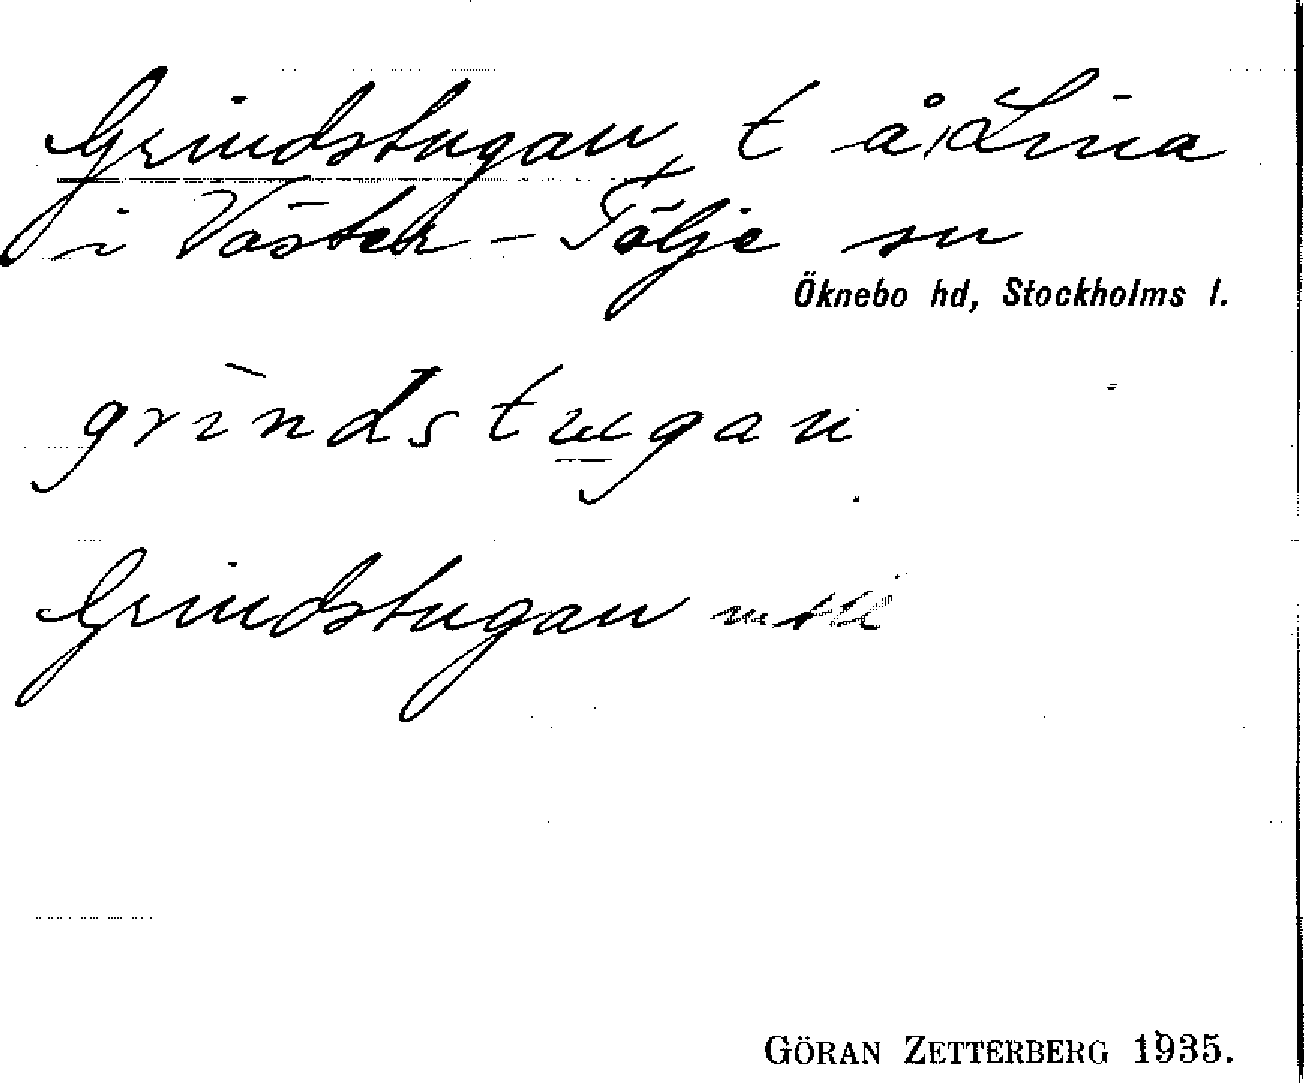 Grindstugan, t å Lina
i Väster-Tälje sn
Öknebo hd, Stockholms l.
grìndstugan
Grindstugan
GÖRAN ZETTERBERG 1935.